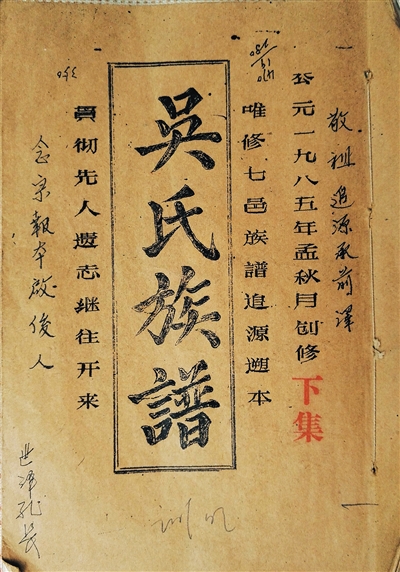 敬祖追源承前泽
公元一九八五年孟秋月创修
下集
唯修七邑族譜追源遡本
吳氏族譜
貫彻先人遗志继往开来
念宗報本啟俊人
世泽孔長